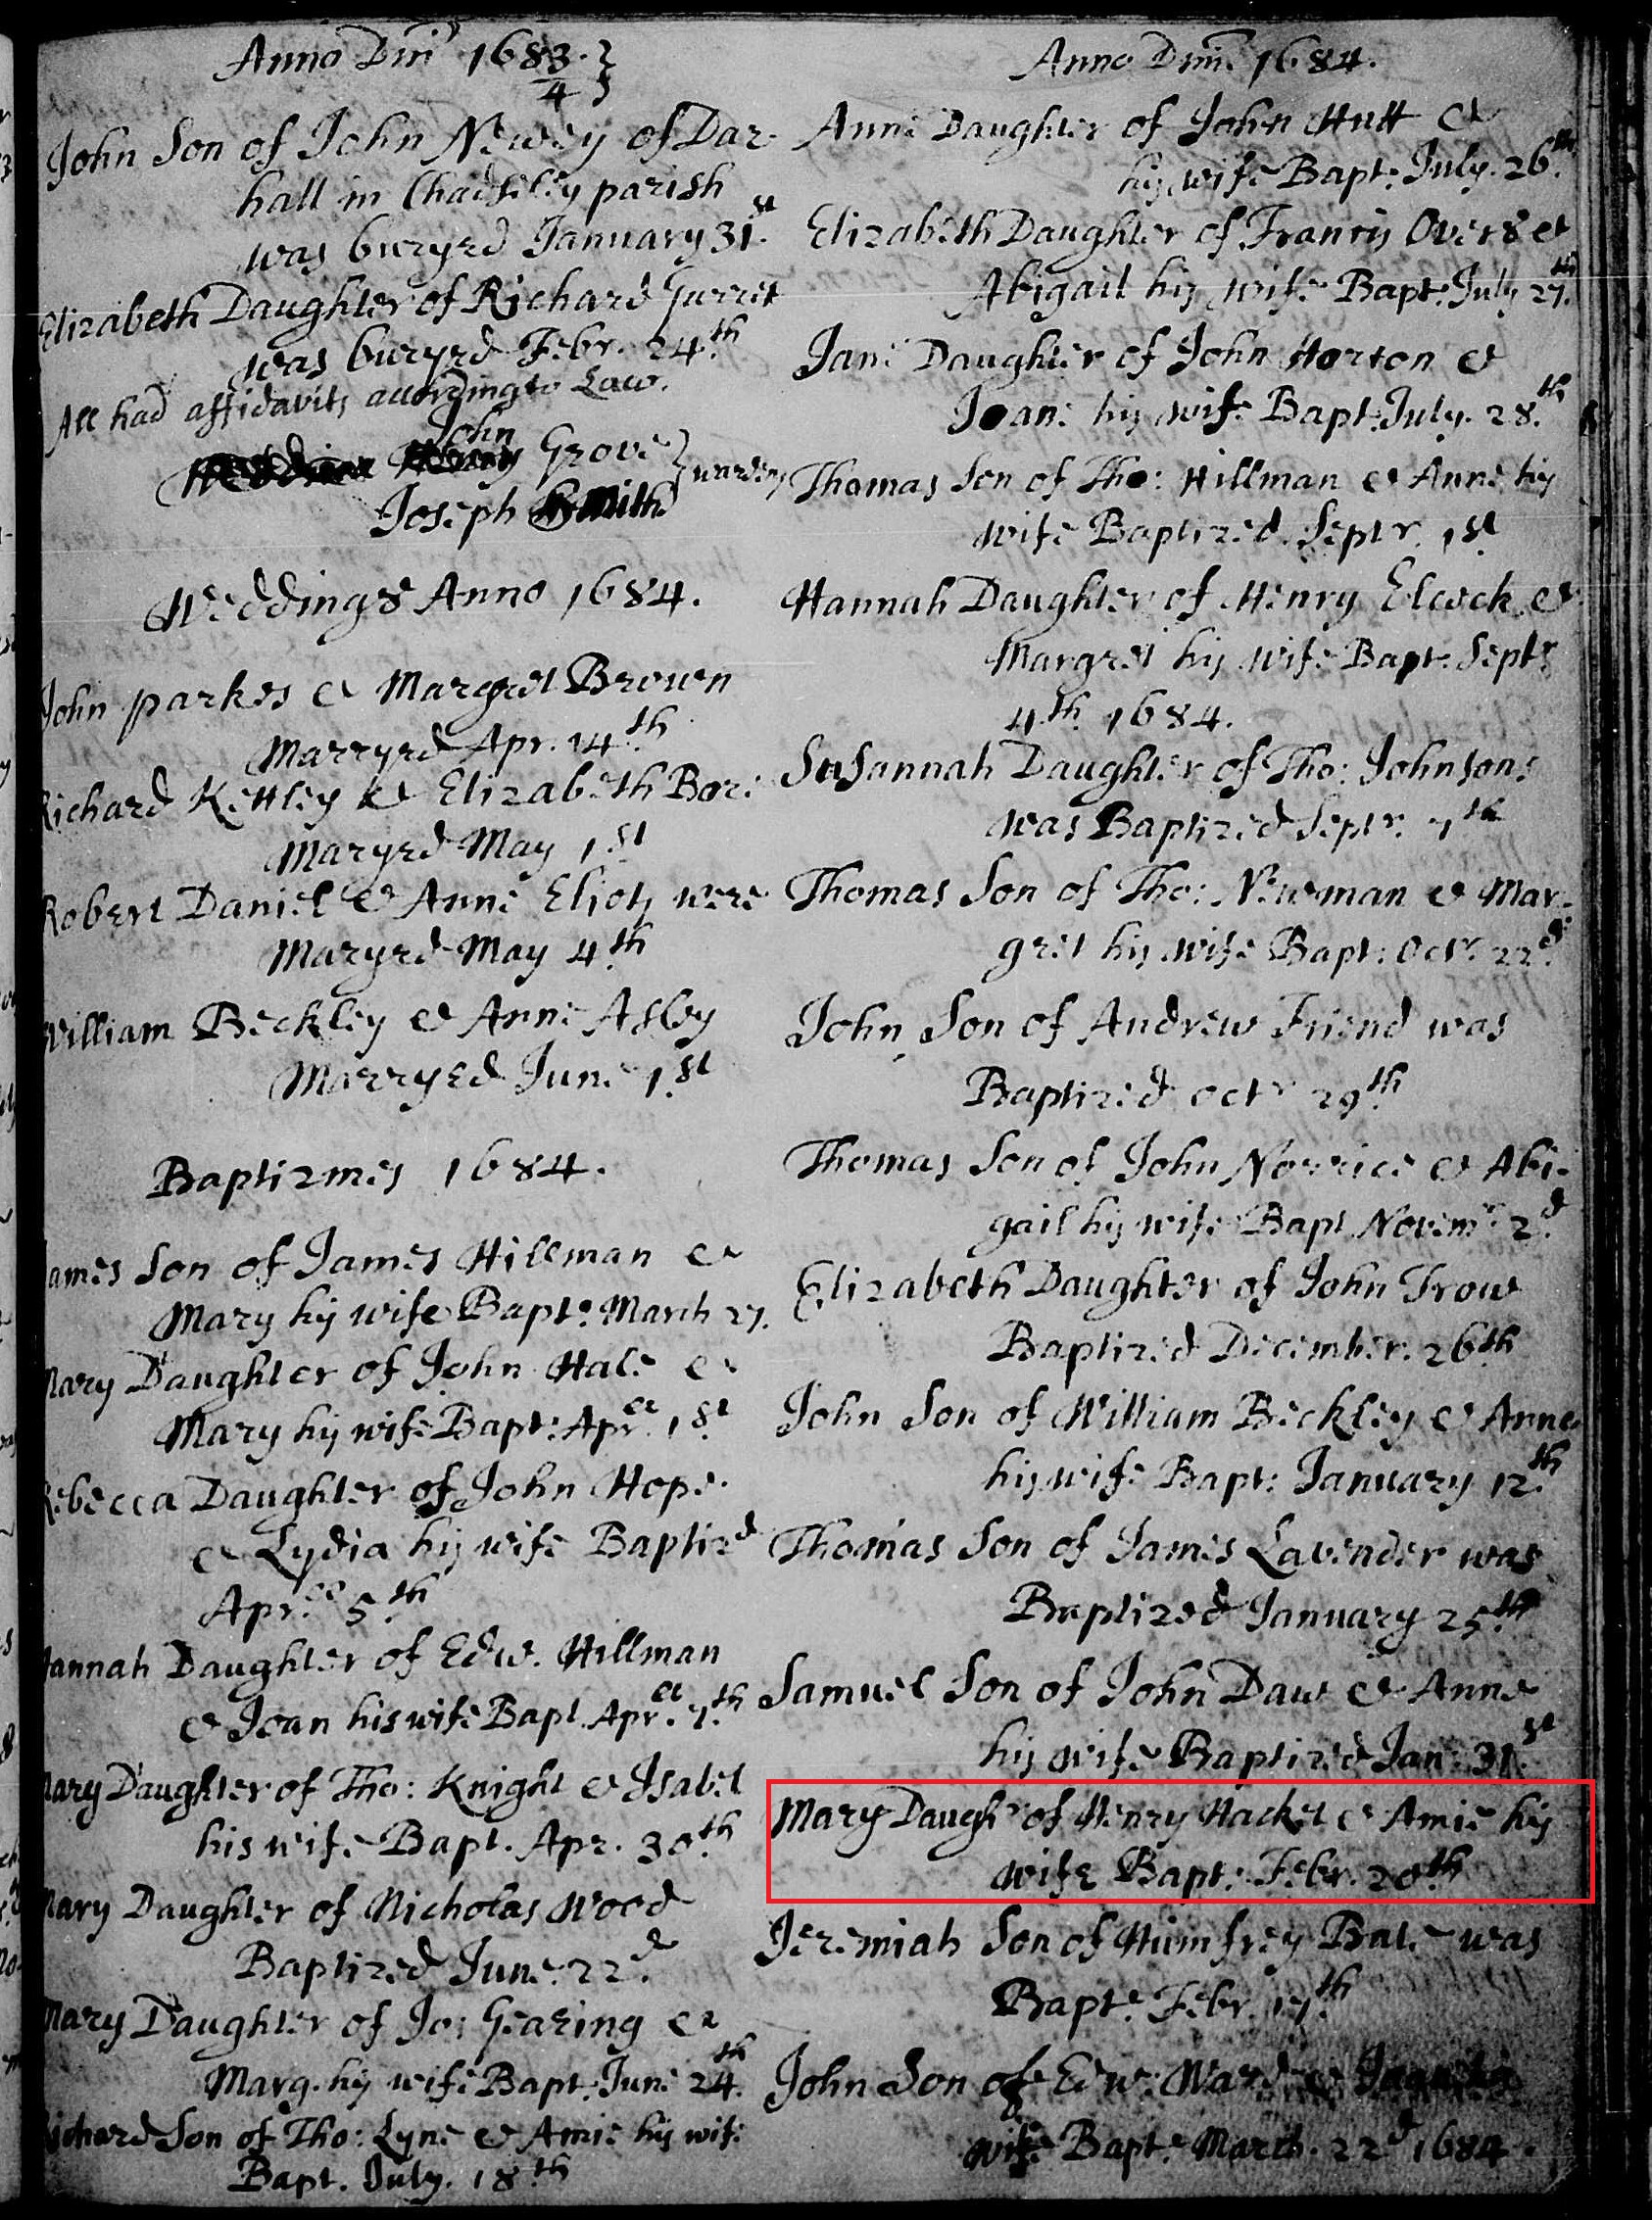 Anno Dni 1683/4 }
John Son of John Newey of Dar-
hall in Chadsley parish
was buryed January 31st
Elizabeth Daughter of Richard Gurrit
was buryed Febr. 24th
All had affidavits according to Law.
John Grove } wardens
Joseph Smith
Weddings Anno 1684.
John parkes & Margret Brown
Marryed Apr. 14th
Richard Kettley & Elizabeth Bore
Maryed May 1st
Robert Daniel & Anne Eliots were
Maryed May 4th
William Beckley & Anne Asby
Marryed June 1st
Baptizmes 1684.
James Son of James Hillman &
Mary his wife Bapt. March 27.
Mary Daughter of John Hale &
Mary his wife Bapt: Aprll 1st
Rebecca Daughter of John Hope
& Lydia his wife Baptizd
Aprll 5th
Hannah Daughter of Edw. Hillman
& Joan his wife Bapt. Aprll 7th
Mary Daughter of Tho: Knight & Isabel
his wife Bapt. Apr. 30th
Mary Daughter of Nicholas Wood
Baptized June 22d
Mary Daughter of Jo: Gearing &
Marg. his wife Bapt. June 24th
Richard Son of Tho: Lyne & Amie his wife
Bapt. July. 18th
Anno Dmi 1684.
Anne Daughter of John Hutt &
his wife Bapt: July. 26th
Elizabeth Daughter of Francis Overs &
Abigail his wife Bapt. July 27th
Jane Daughter of John Horton &
Joane his wife Bapt: July. 28th
Thomas Son of Tho: Hillman & Anne his
wife Baptized Septr. 1st
Hannah Daughter of Henry Elcock &
Margret his wife Bapt. Septr
4th 1684.
Susannah Daughter of Tho: Johnsons
was Baptized Septr. 7th
Thomas Son of Tho: Newman & Mar-
gret his wife Bapt: Octr 22d
John Son of Andrew Friend was
Baptized octr 29th
Thomas Son of John Norrice & Abi-
gail his wife Bapt Novemr 2d
Elizabeth Daughter of John Trow
Baptized December. 26th
John Son of William Beckley & Anne
his wife Bapt: January 12th
Thomas Son of James Lavender was
Baptized January 25th
Samuel Son of John Daw & Anne
his wife Baptized Jan: 31st
Mary Daughr of Henry Hacket & Amie his
wife Bapt: Febr. 20th
Jeremiah Son of Humfrey Bate was
Bapt. Febr. 17th
John Son of Edw: Ward &
wife Bapt. March. 22d 1684.